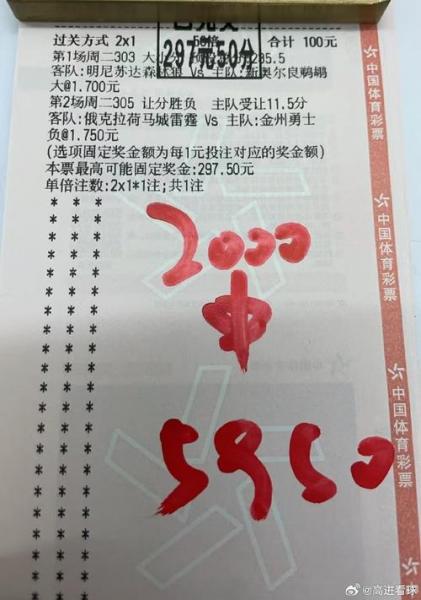 已兑奖
297元50分
过关方式 2x1
50倍
合计 100元
第1场周二303 大小 235.5
客队:明尼苏达森林狼 Vs 主队:新奥尔良鹈鹕
大@1.700元
第2场周二305 让分胜负 主队受让11.5分
客队:俄克拉荷马城雷霆 Vs 主队:金州勇士
负@1.750元
(选项固定奖金额为每1元投注对应的奖金额)
本票最高可能固定奖金:297.50元
单倍注数:2x1*1注;共1注
2000
中
5950
中国体育彩票
中国体育彩票
中国体育彩票
@高进看球